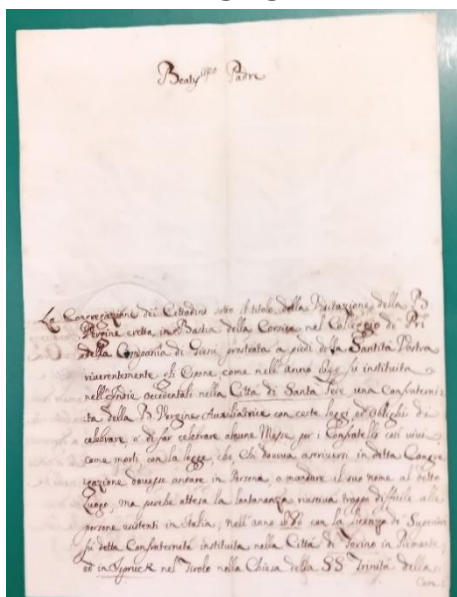 Beat.mo Padre
La Congregazione dei Cittadini sotto il titolo della Visitazione della B
Vergine eretta in Bastia della Corsica nel Collegio de PP.ri
della Compania di Giesù, prostrata a piedi della Santità Vostra
riverentemente Le Espone come nell'anno fù instituita
nell'Indie occidentali nella Città di Santa Fede una Confraterni
ta della B. Vergine Ausiliatrice con certe leggi, ed oblighi di
celebrare, o di far celebrare alcune Messe per i Confratelli così vivi,
come morti, con la legge, che chi doveva ascriversi in detta Congre
gazione dovesse andare in Persona, o mandare il suo nome al detto
Luogo, ma perche attesa la lontananza riusciva troppo difficile alle
persone esistenti in Italia, nell'anno con la licenza de Superiori
fù detta Confraternità instituita nella Città di Torino in Piemonte,
ed in Ispruck nel Tirolo nella Chiesa della SS Trinità della
Com